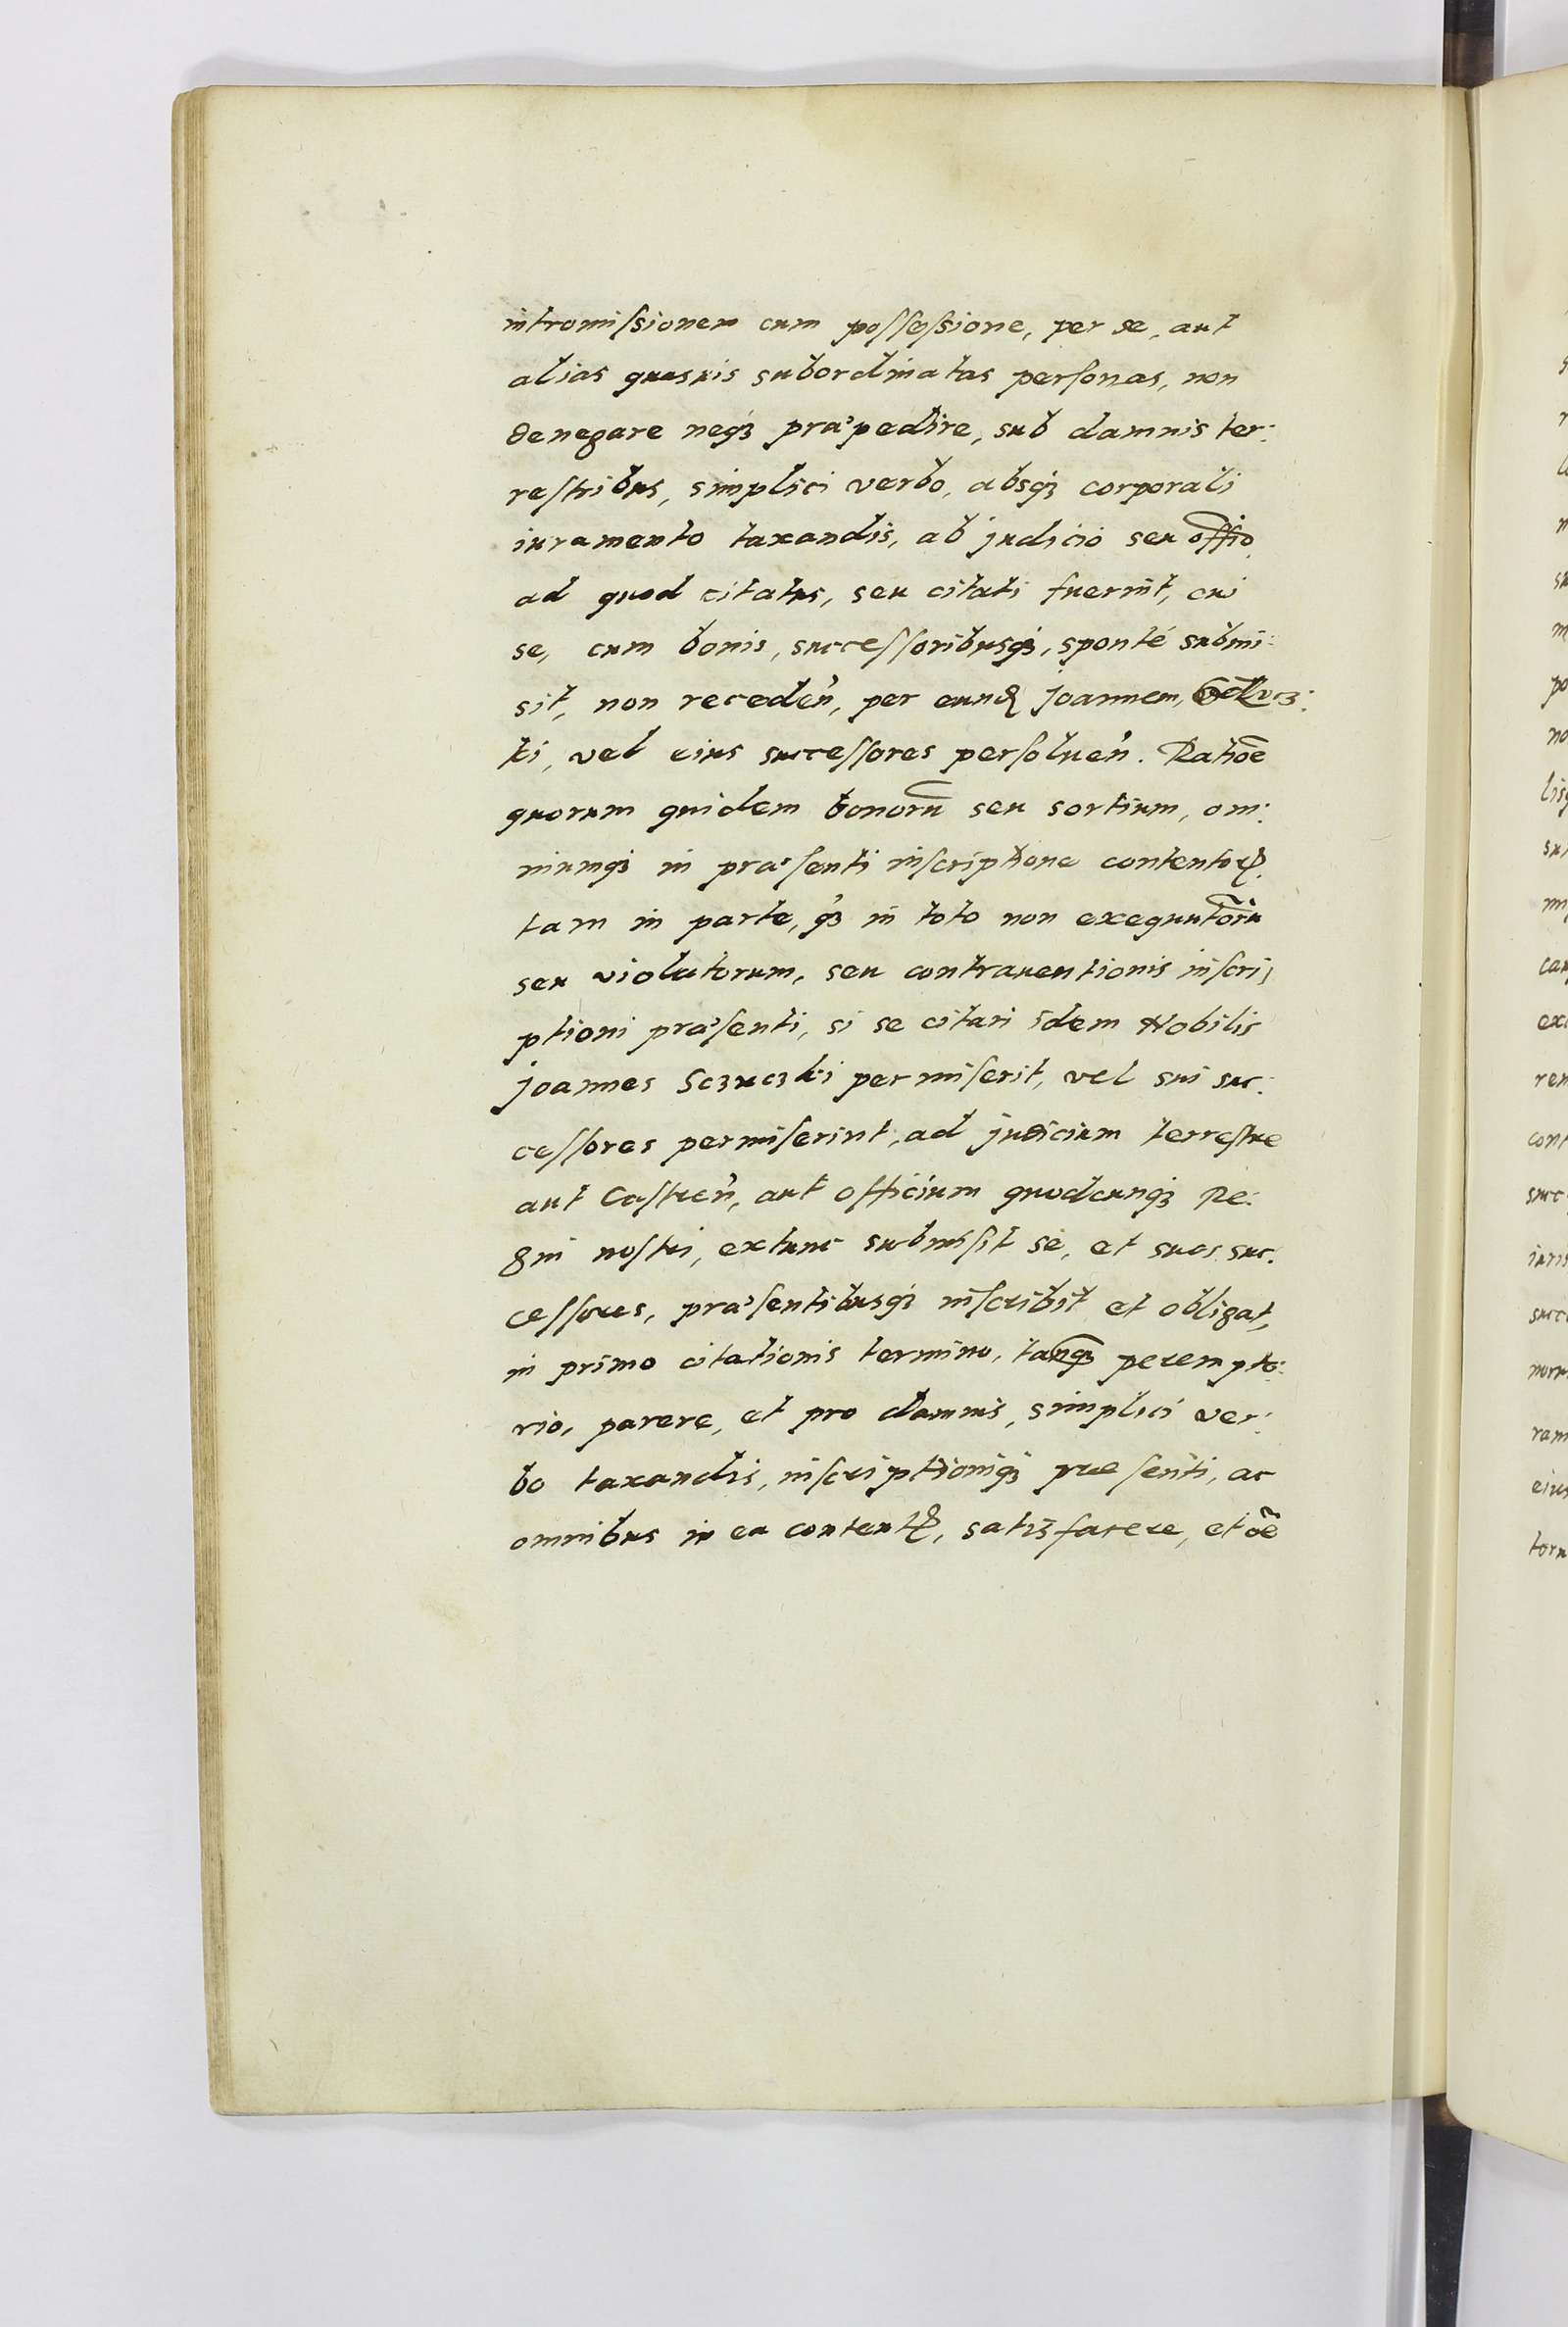 intromiſsionem cum poſſeſsione, per se, aut
alias quasuis subordinatas perſonas, non
denegare neqꝫ præpedire, sub damnis ter:
reſtribus, simplici verbo, absqꝫ corporali
iuramento taxandis, ab judicio seu offio
ad quod citatus, seu citati fuerint, cui
se, cum bonis, succeſſoribusqꝫ, sponté submi:
sit, non receden̄, per eund Joannem,
ki, vel eius succeſſores perſoluen̄. Ratiōe
quorum quidem bonorū seu sortium, om:
niumqꝫ in præſenti inſcriptione contentoꝝ
tam in parte, qꝫ in toto non exequutorū
seu violatorum, seu contrauentionis inſcri
ptioni præſenti, si se citari idem Nobilis
Joannes Sczuczki permiſerit, vel sui suc:
ceſſores permiſerint, ad judicium terreſtre
aut Caſtren̄, aut officium quodcunqꝫ Re:
gni noſtri, extunc submiſit se, et suos suc:
ceſſores, præſentibusqꝫ inſcribit et obligat,
in primo citationis termino, tanqꝫ perempto:
rio, parere, et pro damnis, simplici ver:
bo taxandis, inſcriptioniqꝫ præſenti, ac
omnibus in ea contentꝭ, satisfacere, et oē